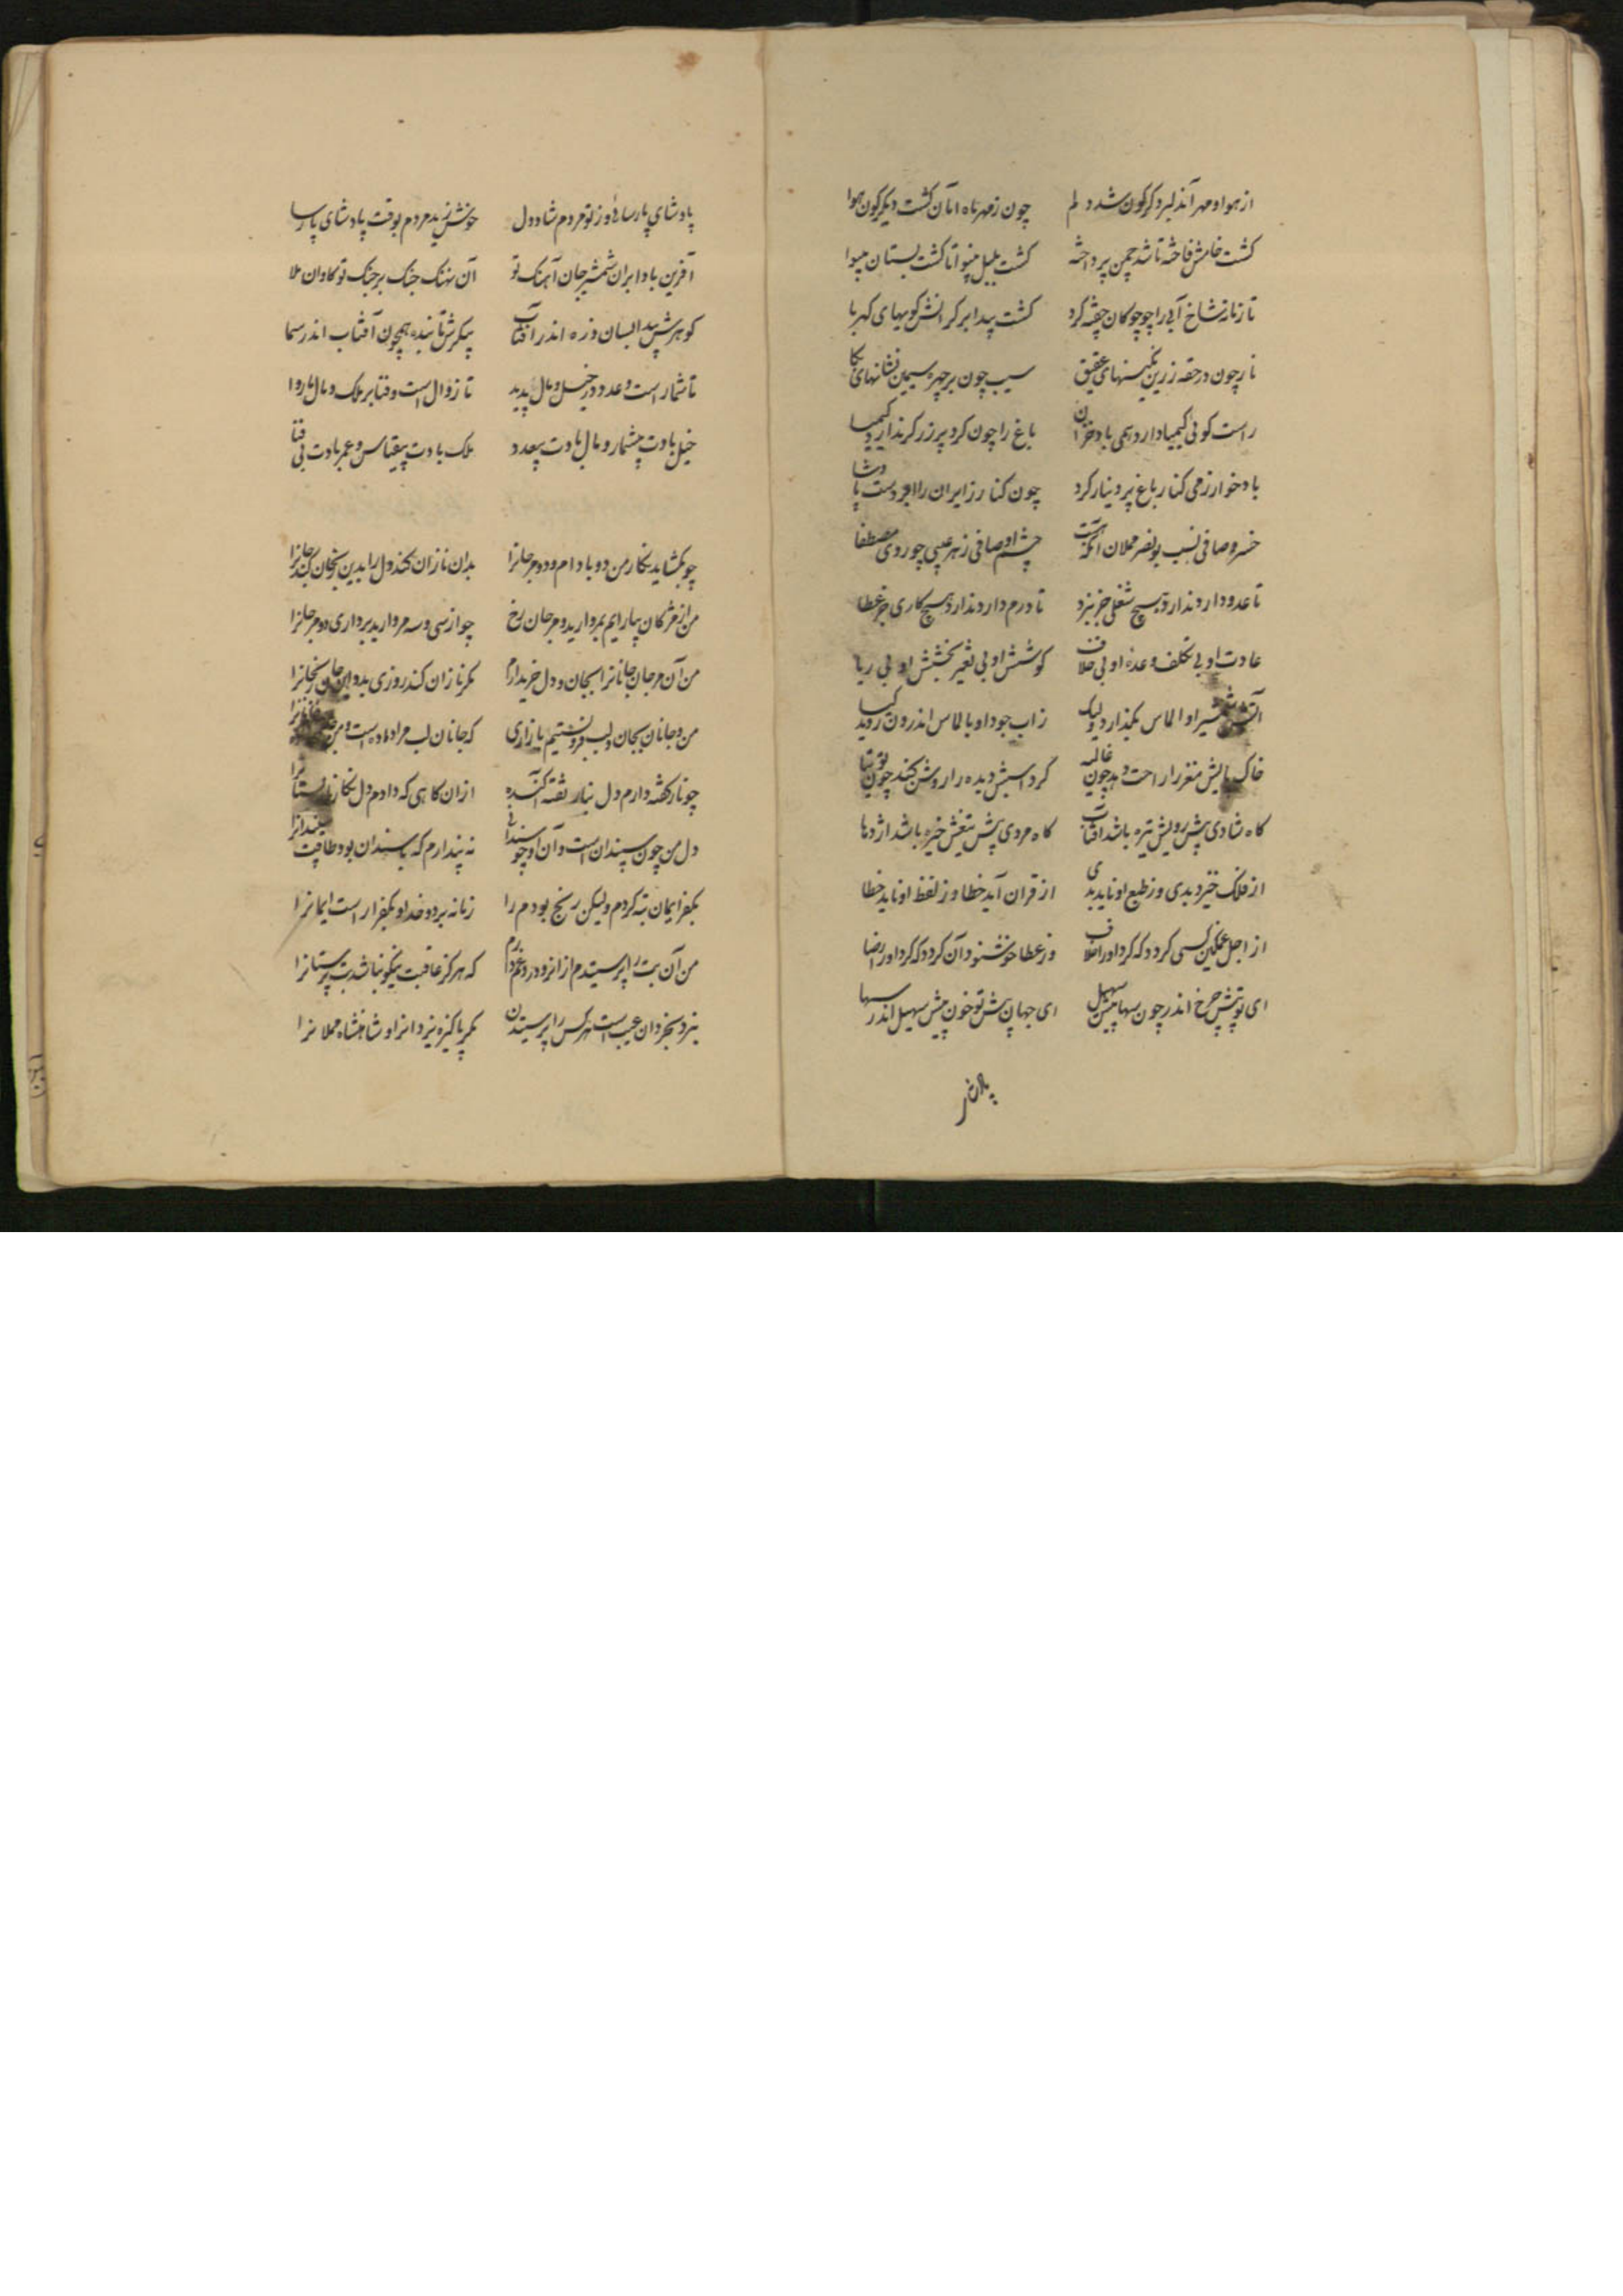 از هوا و مهر آن دلبر دگرگون شد دلم چون ز مهر ماه ابان کشت دیکرکون هوا
کشت خامش فاخته تا شد چمن پرداخته کشت بلبل بینوا تا کشت بستان بینوا
تا ز نارنشاخ آبی را چو چوکان چفته کرد کشت پیدا بر کرانش کویهای کهربا
نار چون در حقه زرین نکینهای عقیق سیب چون بر چهره سیمین نشانهای بکا
راست کوئی کیمیا دارد همی باد خزان باغ را چون کرد پر زر کر ندارد کیمیا
باد خوارزمی کنار باغ پر دینار کرد چون کنار زایران را ابر دست پادشا
خسرو صافی نسب بونصر مملان انکه هست چشم او صافی ز هر عیبی چو روی مصطفا
تا عدو دارد ندارد هیچ شغلی جز نبرد تا درم دارد ندارد هیچ کاری جز عطا
عادت او بی تکلف وعده او بی خلاف کوشش او بی تغیر بخشش او بی ریا
آتش شمشیر او الماس بکدازد ولیک ز آب جود او بالماس اندرون روید کیا
خاک پایش مغز را راحت دهد چون غالیه کرد اسبش دیده را روشن کند چون توتیا
کاه شادی پیش رویش تیره باشد افتاب کاه مردی پیش تیغش خیره باشد اژدها
از فلک خیزد بدی وز طبع او ناید بدی از قران آید خطا وز لفظ او ناید خطا
از اجل غمکین کسی کردد که کرد او را خلاف وز عطا خوشنود آن کردد که کرد او را رضا
ای تو پیش چرخ اندر چون سها پیش سهیل ای جهان پیش تو چون پیش سهیل اندر سها
پادشای پارسائی وز تو مردم شاددل خوش زید مردم بوقت پادشای پارسا
آفرین باد ابران شمشیر جان آهنک تو آن نهنک جنک بر جنک تو کاوان ملا
کوهرش پیدا بسان ذره اندر آفتاب پیکرش تابنده همچون آفتاب اندر سما
تا شمار است و عدد در خیل و مال پدید تا زوال است و فنا بر ملک و مال ناروا
خیل بادت بیشمار و مال بادت بیعدد ملک بادت بیقیاس و عمر بادت بی فنا
چو بکشاید نکار من دو بادام و دو مرجانرا بدان نازان کند دل را بدین رنجان کند جانرا
من از مژکان بیارایم بمروارید و مرجان رخ چو از سی و سه مروارید برداری دو مرجانرا
من آن مرجان جانانرا بجان و دل خریدارم مکر نازان کند روزی بدو این جان رنجانرا
من و جانان بجان و لب فروبستیم بازاری که جانان لب مرا داده است و من
چو نار کفته دارم دل بنار تفته آکنده ازان کاهی که دادم دل نکار نارپستانرا
دل من چون سپندان است و آن او چو سندانی نه پندارم که با سندان بود طاقت سپندانرا
بکفر ایمان تبه کردم ولیکن رنج بودم را زمانه برد و خد او بکفر اراست ایمانرا
من آن بت را پرستیدم از انرو در دو غم دارم که هرکز عاقبت نیکو نباشد بت پرستانرا
بنزد بخردان عیب است هر کس را پرستیدن مکر پاکیزه یزدانرا و شاهنشاه مملانرا